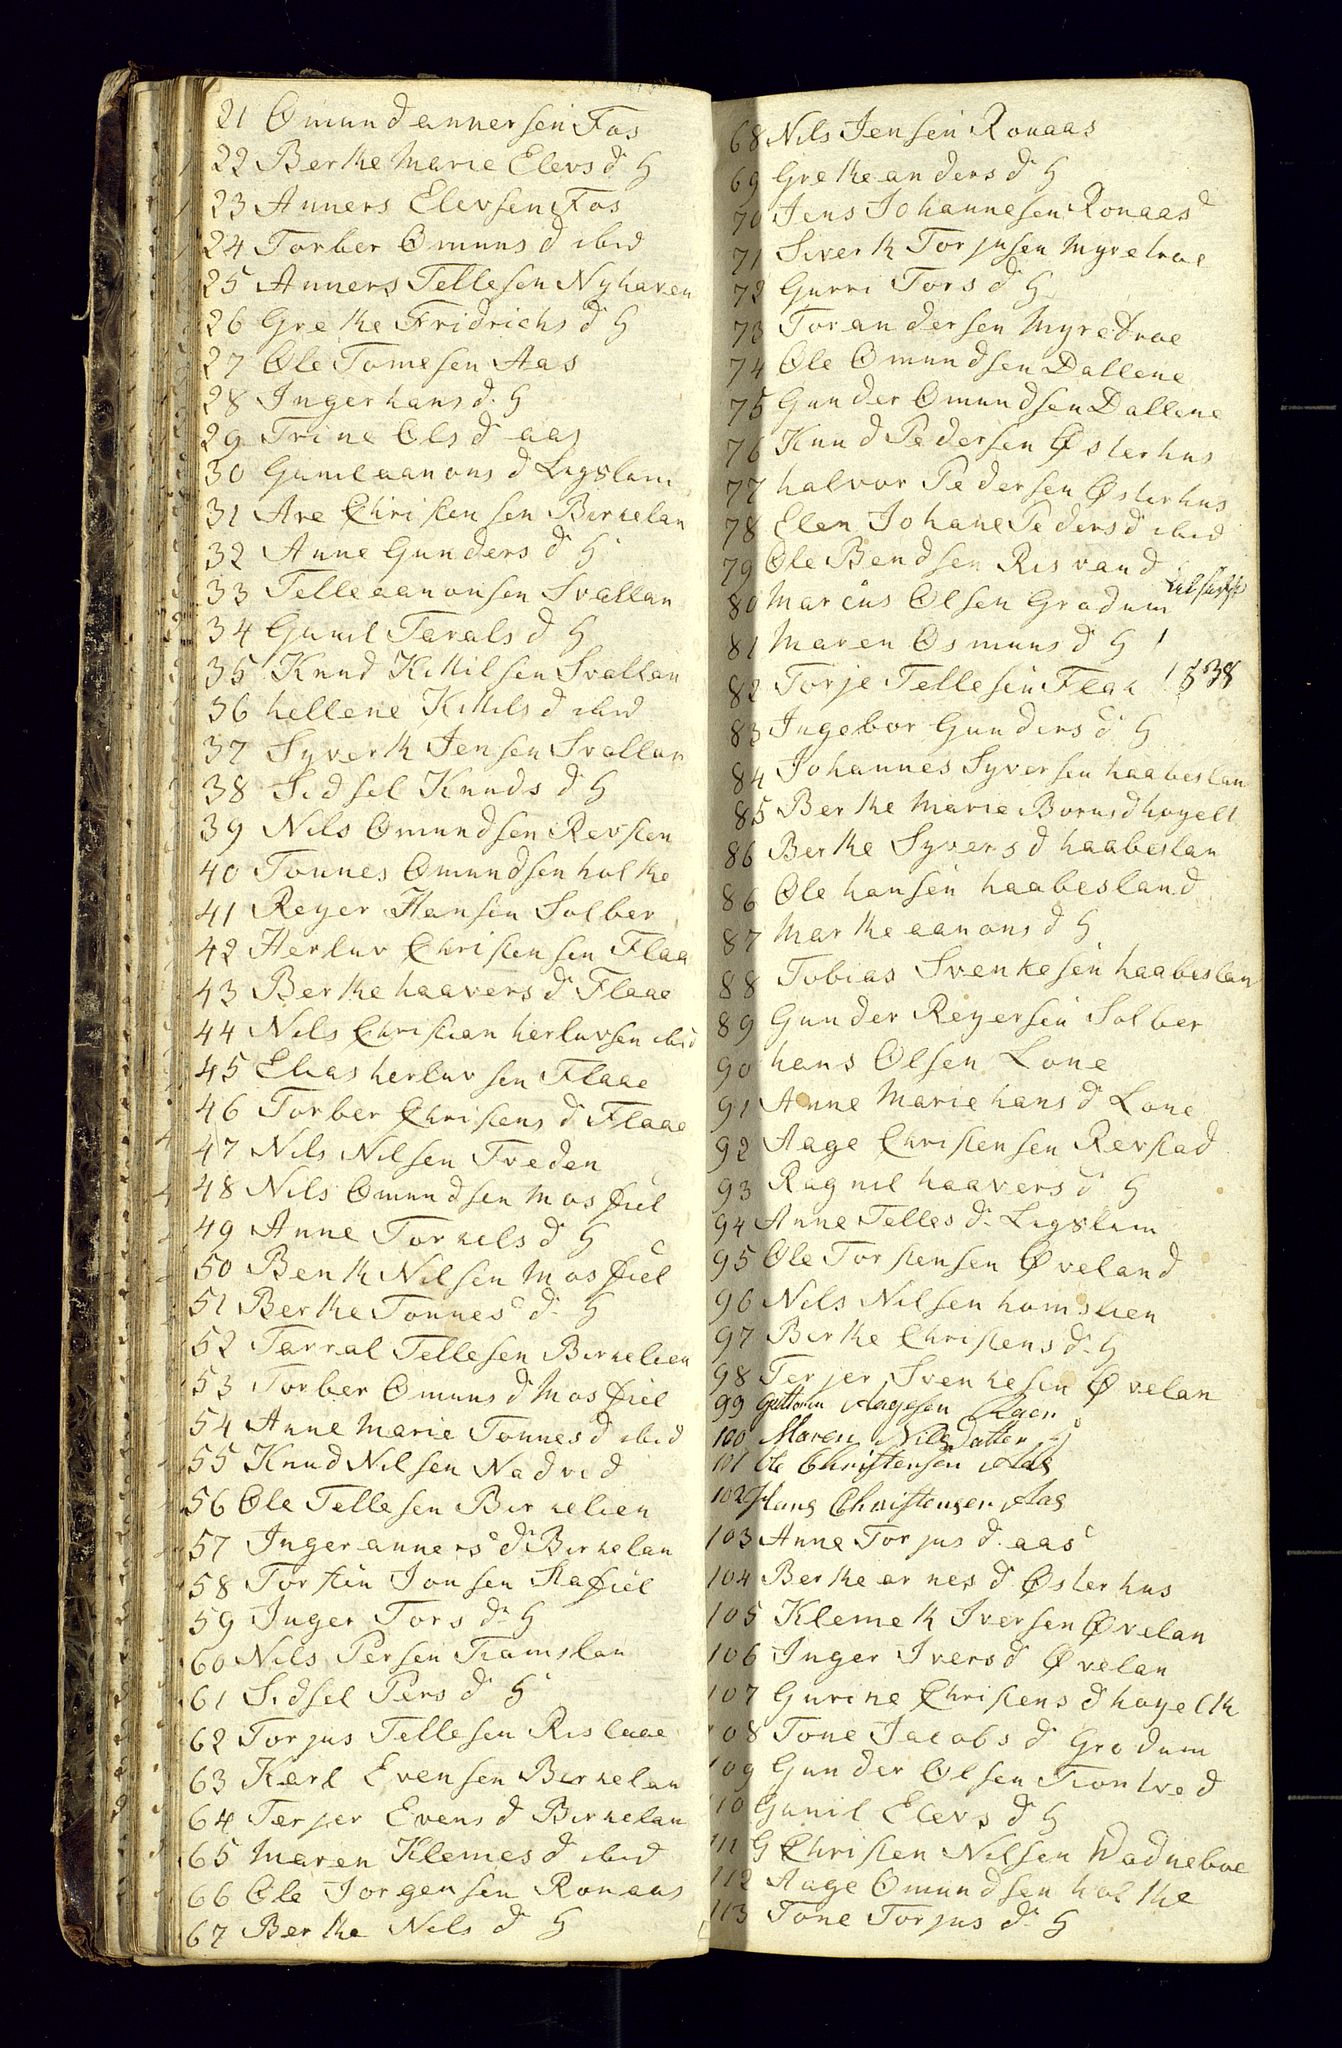 21 Omund annersen Fos
22 Berthe Marie Elevs d H
23 Anners Elevsen Fos
24 Torber Omuns d ibid
25 Anners Tellesen Nyhaven
26 Grethe Fridrichs d H
27 Ole Tomesen Aas
28 Inger hans d. H
29 Trine Ols d aas
30 Gunil aanons d Ligslam
31 Are Christensen Birkelan
32 Anne Gunders d H
33 Telle aanonsen Svallan
34 Gunil Tarals d H
35 Knud Kittilsen Svallan
36 hellene Kittils d ibid
37 Syverth Jensen Svallan
38 Sidsel Knuds d H
39 Nils Omundsen Revsten
40 Tonnes Omundsen holthe
41 Reyer Hansen Solber
42 Herluv Christensen Flaa
43 Berthe haavers d Flaae
44 Nils Christian herluvsen ibid
45 Elias herluvsen Flaae
46 Torber Christens d Flaae
47 Nils Nilsen Treden
48 Nils Omundsen Mosfiel
49 Anne Torkels d H
50 Benth Nilsen Mosfiel
51 Berthe Tonnes d. H
52 Tarral Tellesen Birkelien
53 Torber Omuns d Mosfiel
54 Anne Marie Tonnes d ibid
55 Knud Nilsen Nadved
56 Ole Tellesen Birkelien
57 Inger anners d Birkelan
58 Torstin Jonsen Stafiel
59 Inger Tors d H
60 Nils Persen Tiomslan
61 Sidsel Pers d H
62 Torjus Tellesen Rislaae
63 Karl Evensen Birkelan
64 Terjer Evens d Birkelan
65 Maren Klemes d ibid
66 Ole Jorgensen Ronaas
67 Berthe Nils d H
68 Nils Jensen Ronaas
69 Grethe anders d H
70 Jens Johannesen Ronaas
71 Siverth Torjusen Myretroe
72 Gurri Tors d H
73 Tor andersen Myretroe
74 Ole Omundsen Dallene
75 Gunder Omundsen Dallene
76 Knud Pedersen Østerhus
77 halvor Pedersen Østerhus
78 Elen Johane Peders d ibid
79 Ole Bendsen Risvand
80 Marcus Olsen Grodum
81 Maren Osmuns d H
82 Torje Tellesen Flak 1838
83 Ingebor Gunders d H
84 Johannes Syversen haabeslan
85 Berthe Marie Borus d hoyelt
86 Berthe Syvers d haabeslan
86 Ole hansen haabesland
87 Marthe aanons d H
88 Tobias Svenkesen haabeslan
89 Gunder Reyersen Solber
90 hans Olsen Lone
91 Anne Marie hans d Lone
92 Aage Christensen Revstad
93 Ragnil haavers d H
94 Anne Telles d. Ligslim
95 Ole Torstensen Øveland
96 Nils Nilsen homslien
97 Birthe Christens d. H
98 Terjer Svenkesen Øvelan
99 Guttorm Aagesen
100 Maren Nilsdatter
101 Ole Christensen Aas
102 Hans Christensen Aas
103 Anne Torjus d. aas
104 Berthe arnes d Østerhus
105 Klemeth Iversen Øvelan
106 Inger Ivers d Øvelan
107 Gurine Christens d hoyelth
108 Tone Jacobs d Grodum
109 Gunder Olsen Tiontved
110 Gunil Elevs d H
111 G Christen Nilsen Wadneboe
112 Aage Omundsen holthe
113 Tone Torjus d H